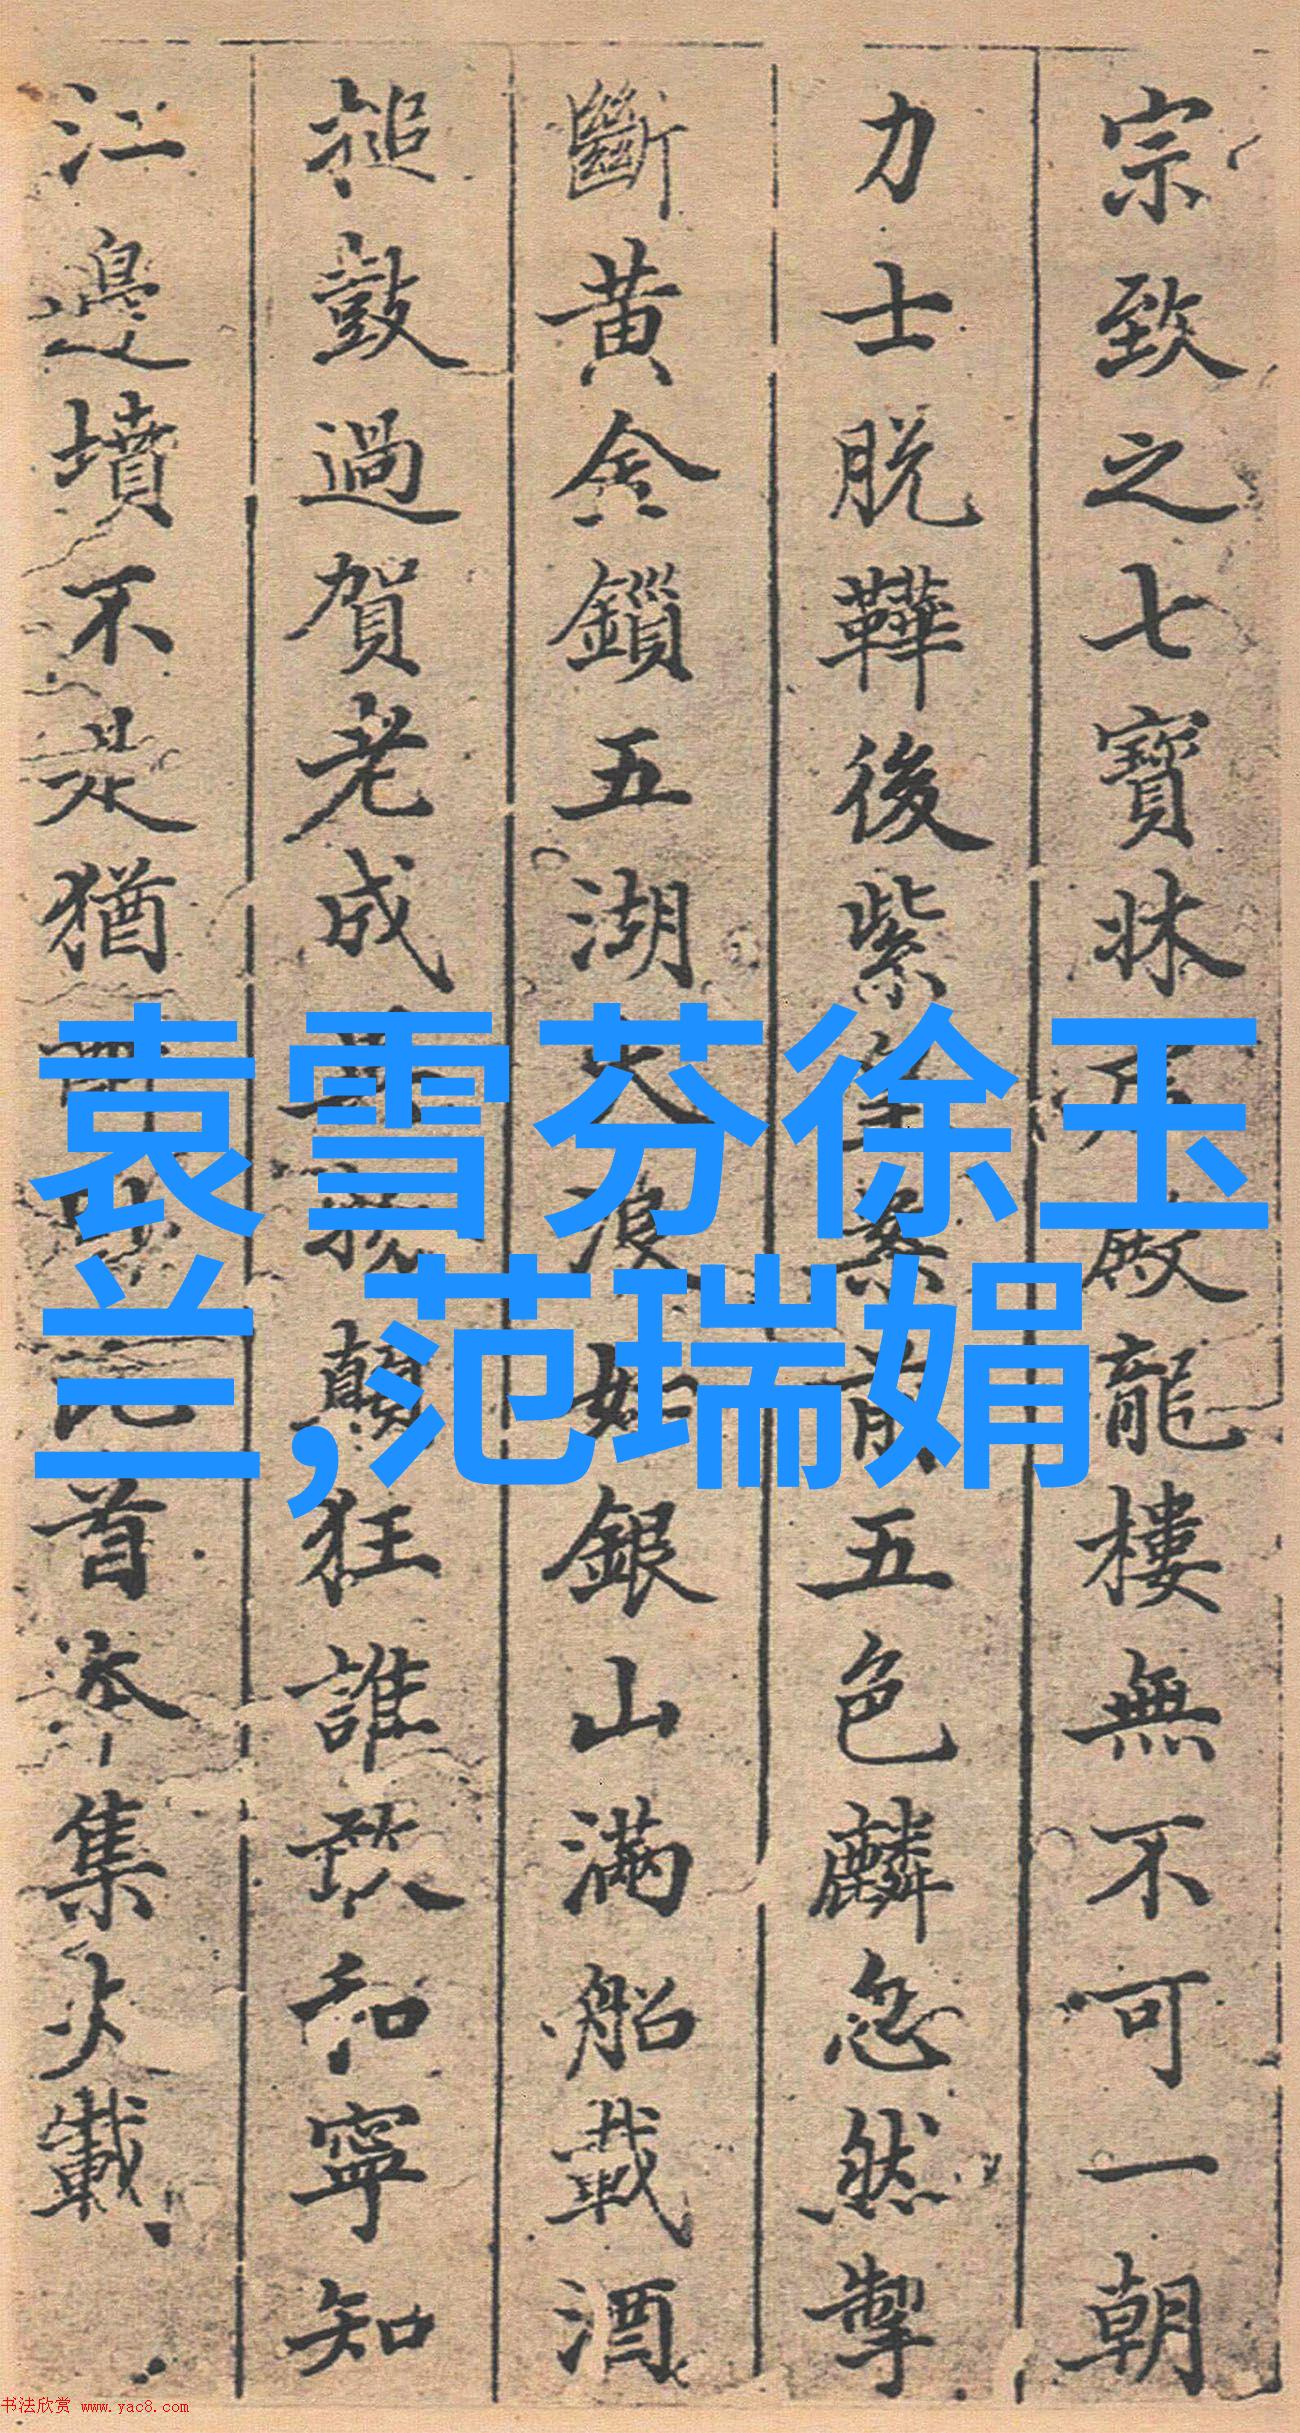 宗致之七寶牀
龍樓無不可一朝
力士脱鞾後紫
五色麟忽然掣
斷黄金鎖五湖
銀山滿船載酒
搥鼓過賀老成
顛狂誰敢和寧知
江邊墳不是猶
首本集火載
袁雪芬徐玉
兰,范瑞娟
书法欣赏 www.yac8.com